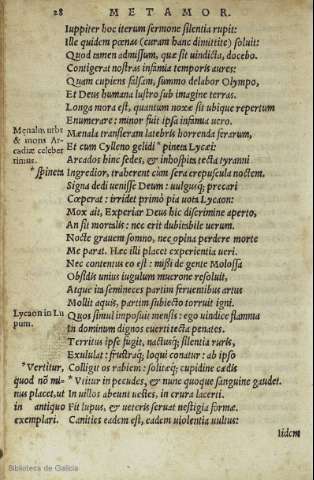 28 METAMOR.
Iuppiter hoc iterum sermone silentia rupit:
Ille quidem pœnas (curam hanc dimittite) soluit:
Quod tamen admissum, quæ sit uindicta, docebo.
Contigerat nostras infamia temporis aures:
Quam cupiens falsam, summo delabor Olympo,
Et Deus humana lustro sub imagine terras.
Longa mora est, quantum noxæ sit ubique repertum
Enumerare: minor fuit ipsa infamia uero.
Menalꝰ urbs
& mons Ar-
cadiæ celeber
rimus.
Mænala transieram latebris horrenda ferarum,
Et cum Cylleno gelidi * pineta Lycæi:
Arcados hinc sedes, & inhospita tecta tyranni
* spineta
Ingredior, traherent cum sera crepuscula noctem.
Signa dedi uenisse Deum: uulgusq; precari
Cœperat: irridet primò pia uota Lycaon:
Mox ait, Experiar Deus hic discrimine aperto,
An sit mortalis: nec erit dubitabile uerum.
Nocte grauem somno, nec opina perdere morte
Me parat. Hæc illi placet experientia ueri.
Nec contentus eo est: missi de gente Molossa
Obsidis unius iugulum mucrone resoluit,
Atque ita semineces partim feruentibus artus
Mollit aquis, partim subiecto torruit igni.
Lycaon in Lu
pum.
Quos simul imposuit mensis: ego uindice flamma
In dominum dignos euerti tecta penates.
Territus ipse fugit, nactusq; silentia ruris,
Exululat: frustraq; loqui conatur: ab ipso
* Vertitur,
quod nō mi-
nus placet, ut
in antiquo
exemplari.
Colligit os rabiem: solitæq; cupidine cædis
* Vtitur in pecudes, & nunc quoque sanguine gaudet.
In uillos abeunt uestes, in crura lacerti.
Fit lupus, & ueteris seruat uestigia formæ.
Canities eadem est, eadem uiolentia uultus:
Iidem
Biblioteca de Galicia